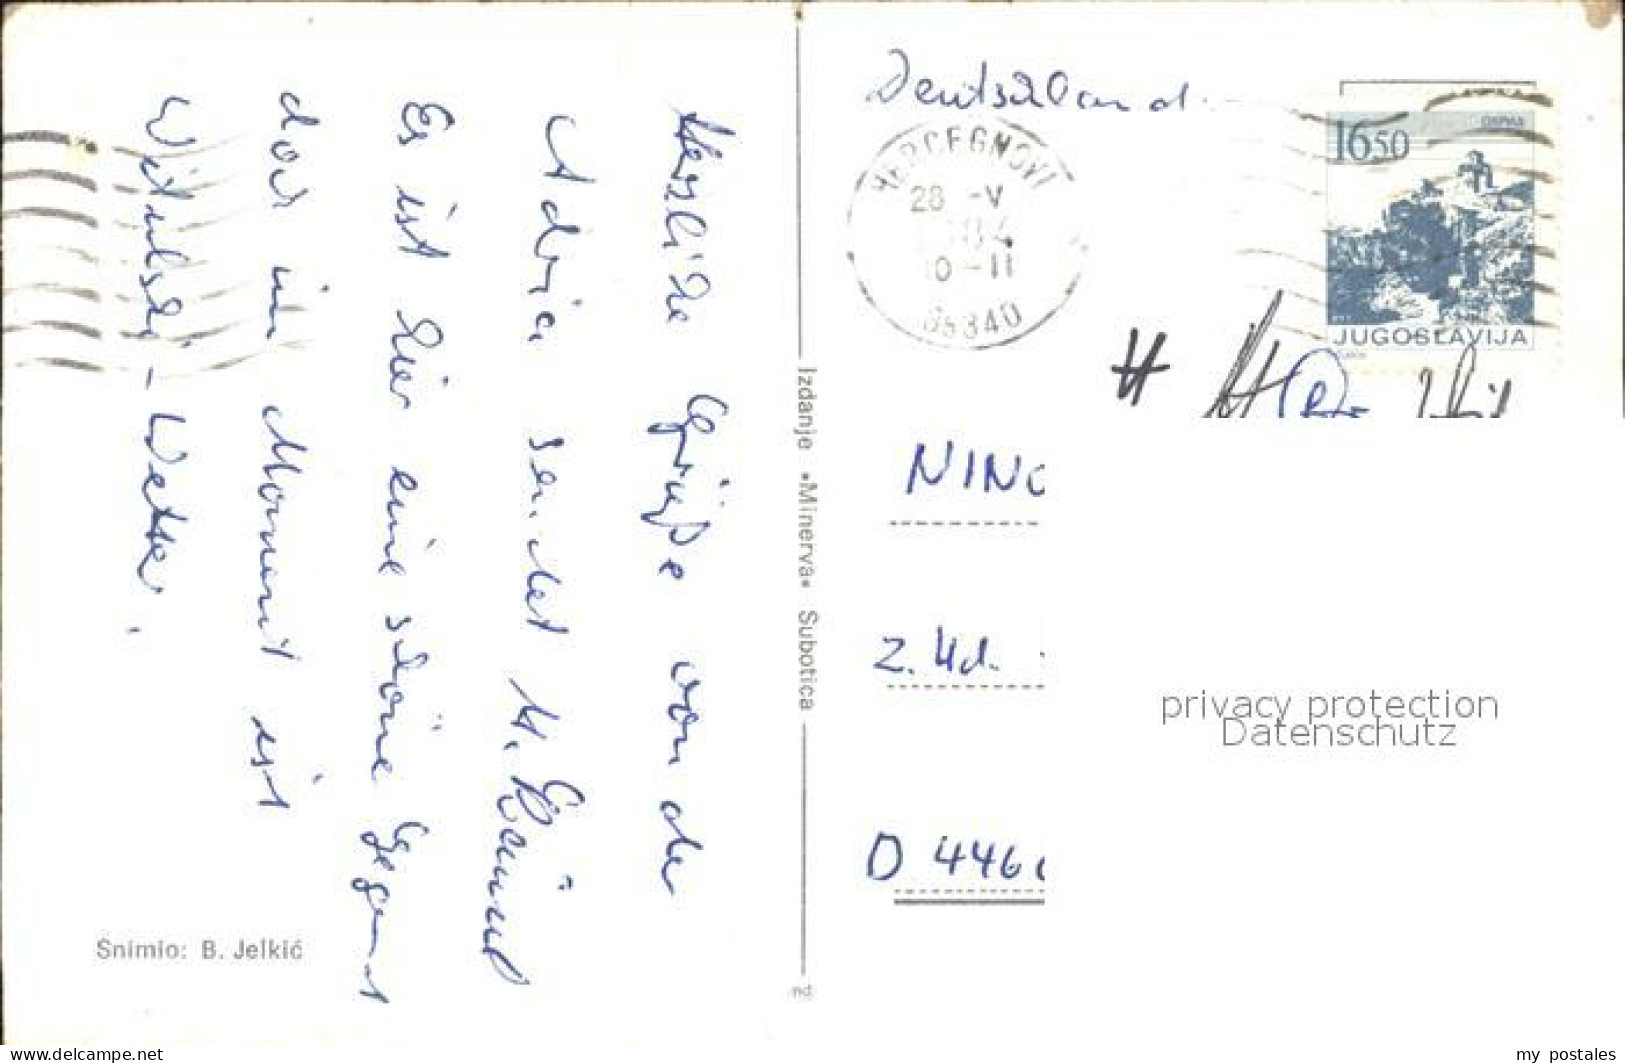 Herzliche Grüße von der
Adria sendet H.
Es ist hier eine schöne Gegend
doch im Moment ist
- Wetter.
Snimio: B. Jelkić
Izdanje »Minerva« Subotica
nd
Deutschland.
HERCEGNOVI
28 -V
10-11
85340
1650
JUGOSLAVIJA
NINO
Z. Hd.
D 446
privacy protection
Datenschutz
www.delcampe.net
my_postales